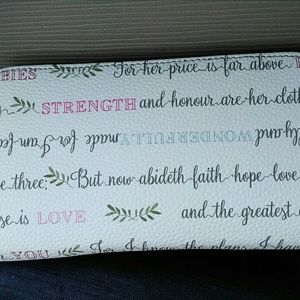 BIES For her price is far above
STRENGTH and honour are her cloth
fully and WONDERFULLY made for I am fea
e three; But now abideth faith hope love
se is LOVE and the greatest o
YOU For I know the plans I have